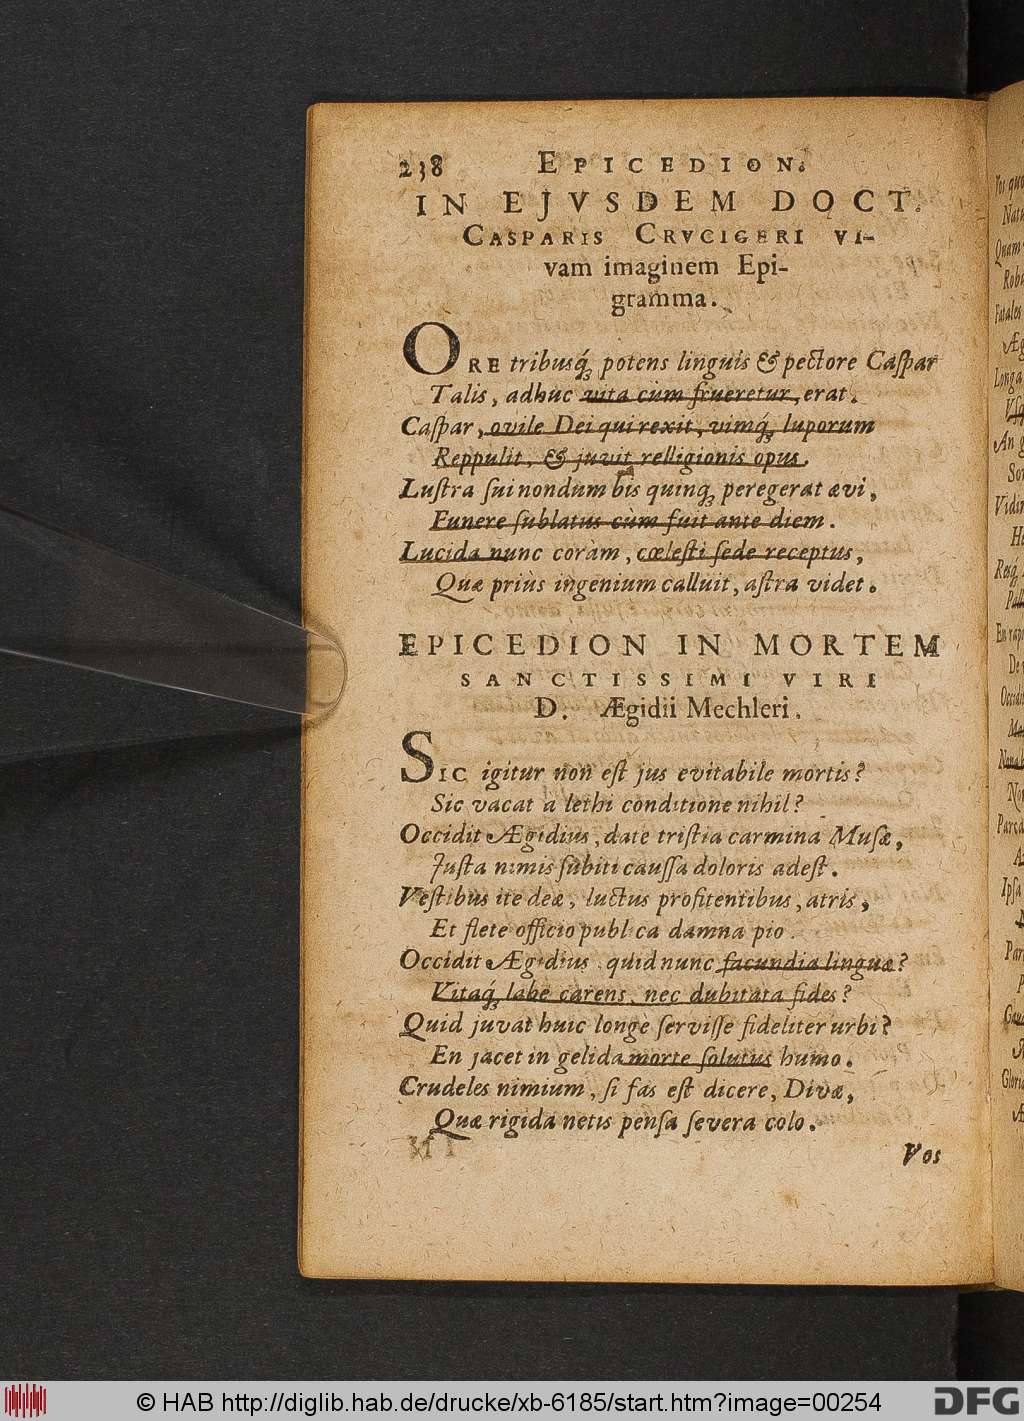 238 EPICEDION.
IN EJVSDEM DOCT.
CASPARIS CRVCIGERI VI-
vam imaginem Epi-
gramma.
ORE tribusq́; potens linguis & pectore Caſpar
Talis, adhuc vita cùm frueretur, erat.
Caſpar, ovile Dei qui rexit, vimq́; luporum
Reppulit, & juvit relligionis opus.
Luſtra ſui nondum bis quinq; peregerat ævi,
Funere ſublatus cùm fuit ante diem.
Lucida nunc coràm, cœleſti ſede receptus,
Quæ priùs ingenium calluit, aſtra videt.
EPICEDION IN MORTEM
SANCTISSIMI VIRI
D. Ægidii Mechleri.
SIC igitur non eſt jus evitabile mortis?
Sic vacat a lethi conditione nihil?
Occidit Ægidius, date triſtia carmina Muſæ,
Juſta nimis ſubiti cauſſa doloris adeſt.
Veſtibus ite deæ, luctus profitentibus, atris,
Et flete officio publica damna pio.
Occidit Ægidius. quid nunc facundia linguæ?
Vitaq́; labe carens, nec dubitata fides?
Quid juvat huic longè ſerviſſe fideliter urbi?
En jacet in gelida morte ſolutus humo.
Crudeles nimium, ſi fas eſt dicere, Divæ,
Quæ rigida netis penſa ſevera colo.
Vos
© HAB http://diglib.hab.de/drucke/xb-6185/start.htm?image=00254
DFG